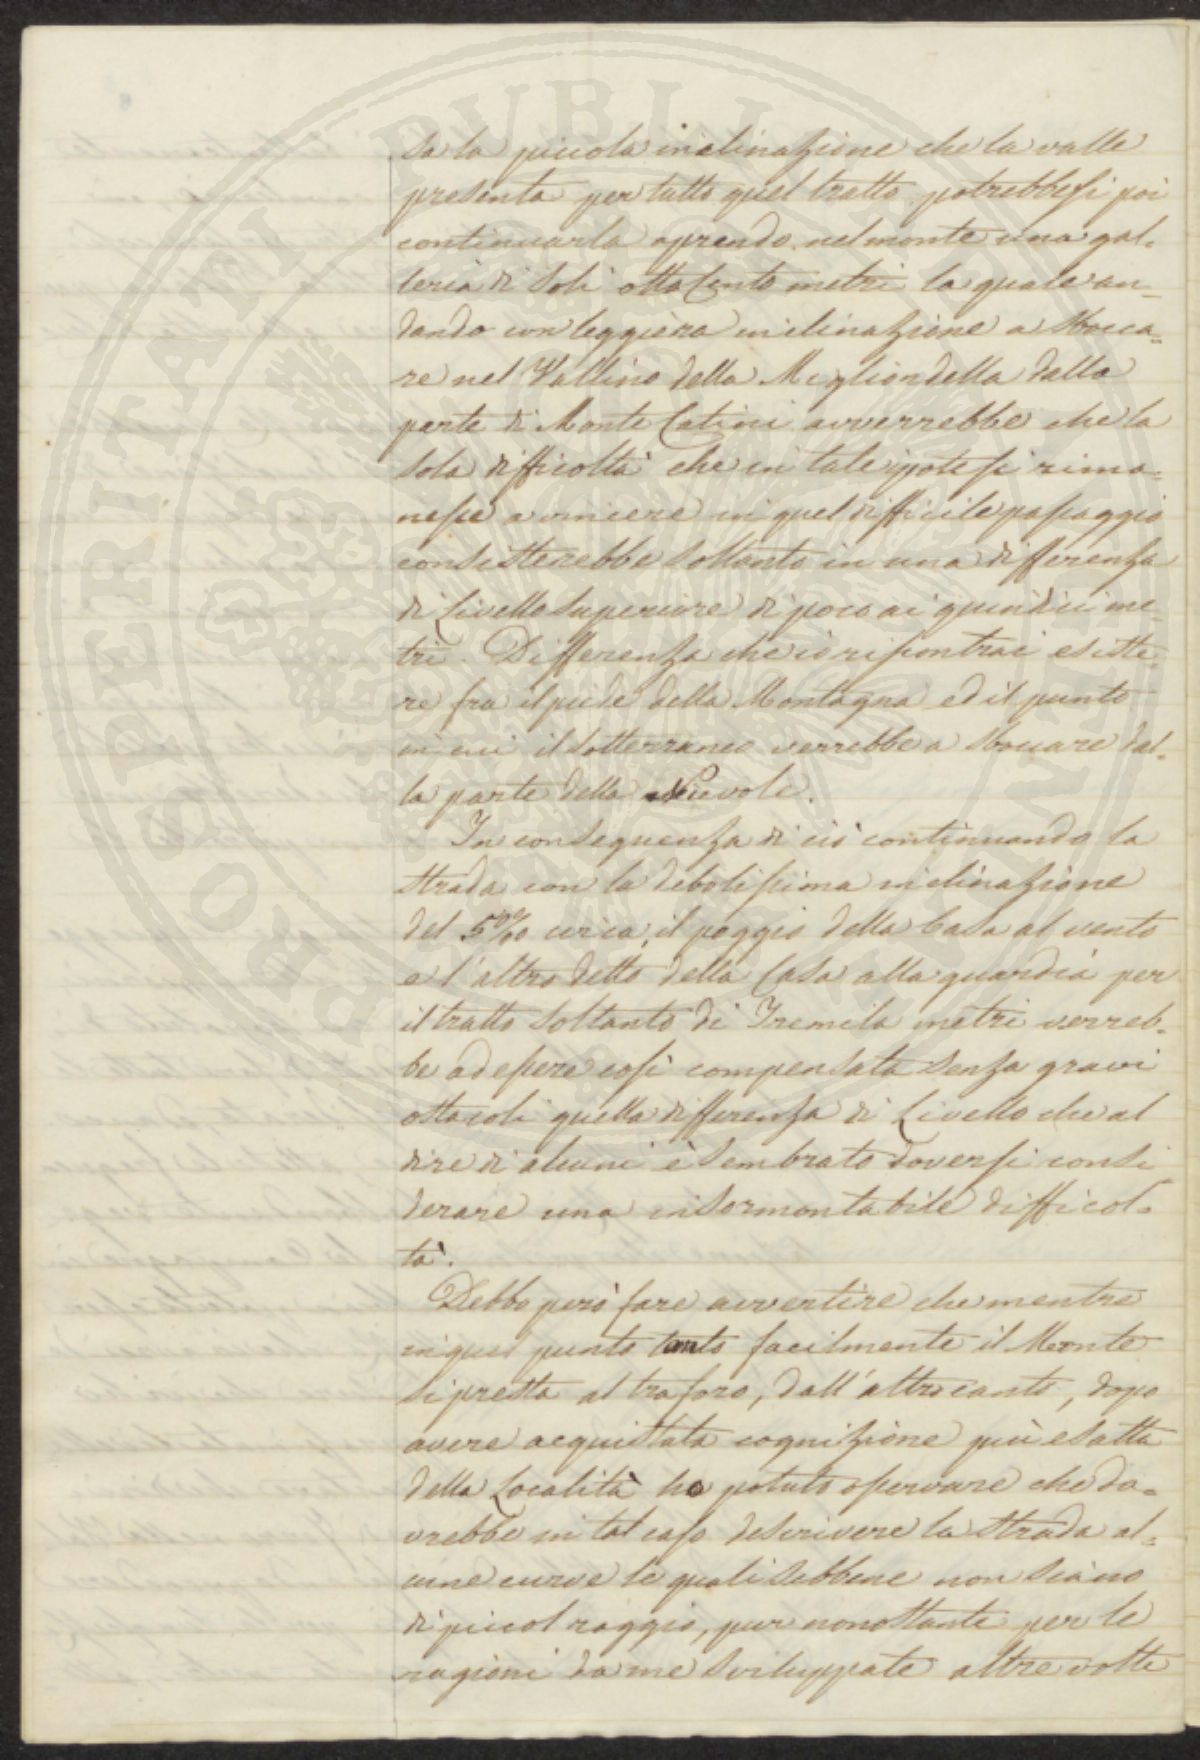 sa la piccola inclinazione che la valle
presenta per tutto quel tratto potrebbesi poi
continuarla aprendo nel monte una gal-
leria di soli ottocento metri la quale an-
dando con leggièra inclinazione a sbocca-
re nel Vallino della Migliondella dalla
parte di Monte Catini avverrebbe che la
sola difficoltà che in tale ipotesi rima-
nesse a vincere in quel difficile passaggio
consisterebbe soltanto in una differenza
di Livello superiore di poco ai quindici me-
tri. Differenza che io riscontrai esiste-
re fra il piede della Montagna ed il punto
in cui il sotterraneo verrebbe a sboccare dal-
la parte della Nievole.
In conseguenza di ciò continuando la
strada con la debolissima inclinazione
del 5‰ circa, il poggio della Casa al vento
e l'altro detto della Casa alla guardia per
il tratto soltanto di Tremila metri verreb-
be ad essere così compensata senza gravi
ostacoli quella differenza di Livello che al
dire di alcuni è sembrato doversi consi
derare una insormontabile difficol-
tà.
Debbo però fare avvertire che mentre
in quel punto tanto facilmente il Monte
si presta al traforo, dall'altro canto, dopo
avere acquistata cognizione più esatta
della Località ho potuto osservare che do-
vrebbe in tal caso descrivere la strada al-
cune curve le quali sebbene non siano
di piccol raggio, pur nonostante per le
ragioni da me sviluppate altre volte
PROSPERITATI PUBLI